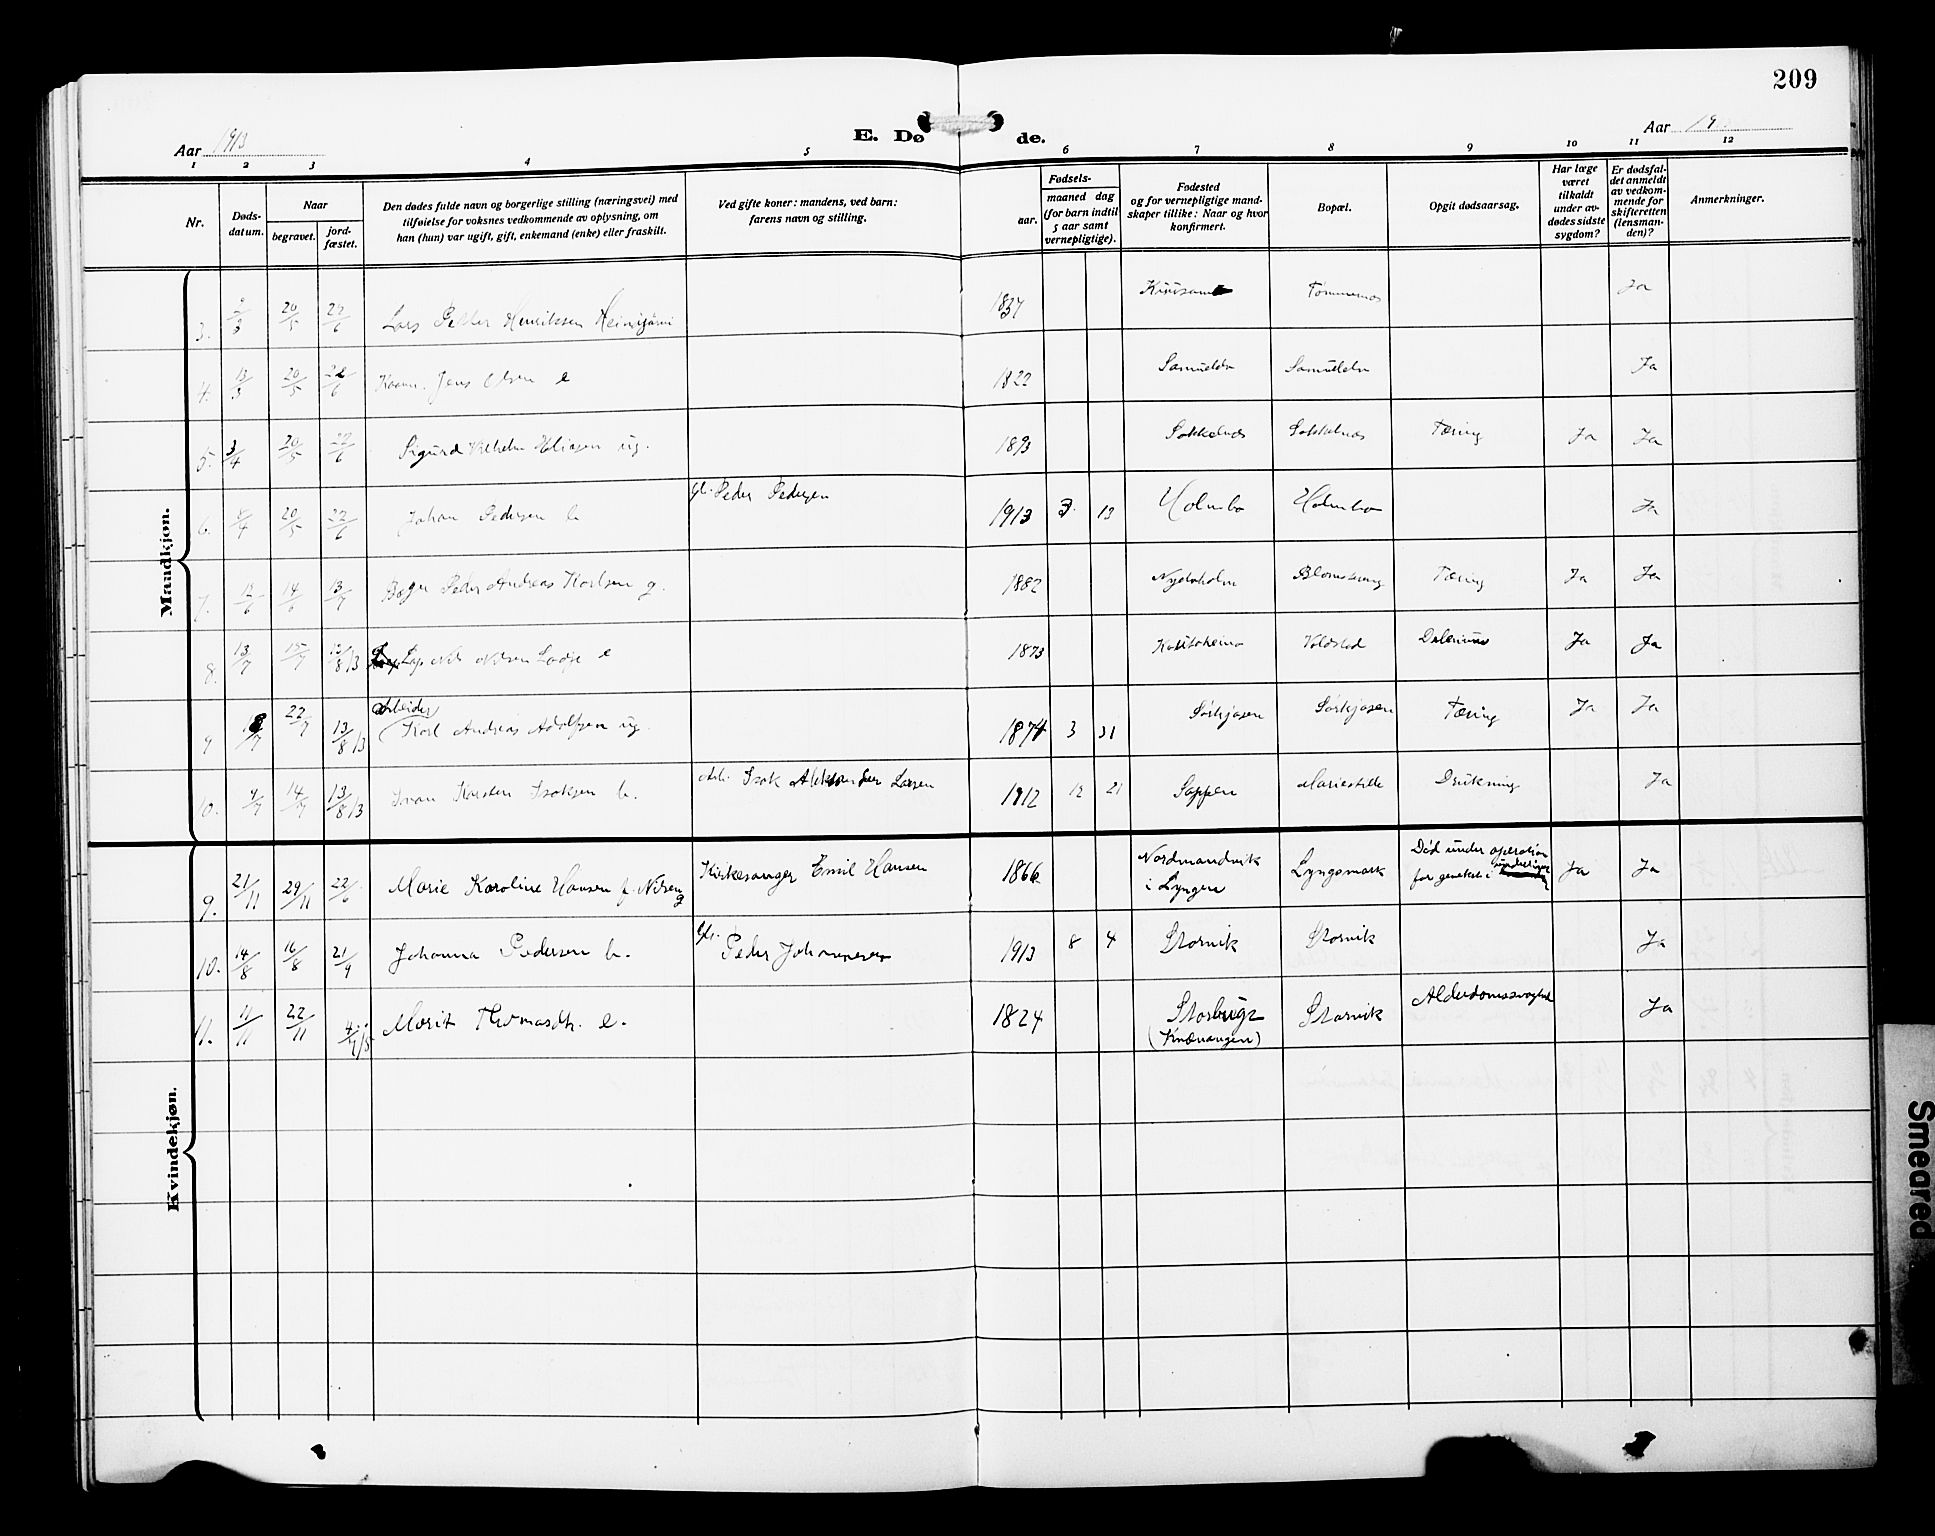 209
Aar 1913
E. Dø de.
Aar 19
1 2 3 4 5 6 7 8 9 10 11 12
Nr.
Døds-
datum.
Naar
begravet.
jord-
fæstet.
Den dødes fulde navn og borgerlige stilling (næringsvei) med
tilføielse for voksnes vedkommende av oplysning, om
han (hun) var ugift, gift, enkemand (enke) eller fraskilt.
Ved gifte koner: mandens, ved barn:
farens navn og stilling.
Fødsels-
aar.
maaned dag
(for barn indtil
5 aar samt
vernepligtige).
Fødested
og for vernepligtige mand-
skaper tillike: Naar og hvor
konfirmert.
Bopæl.
Opgit dødsaarsag.
Har læge
været
tilkaldt
under av-
dødes sidste
sygdom?
Er dødsfal-
det anmeldt
av vedkom-
mende for
skifteretten
(lensman-
den)?
Anmerkninger.
Mandkjøn.
3. 20/5 22/6 Lars Petter Henriksen 1837 Ja
4. 13/3 20/5 22/6 Jens Olsen e 1822 Samuelelv Samuelelv Ja
5. 3/4 20/5 22/6 Sigurd Vilhelm Eliasen ug. 1893 Sokkelnes Sokkelnes Tæring Ja Ja
6. 20/5 22/6 Johan Pedersen b. Peder Pedersen 1913 3 13 Holmbo Holmbo Ja
7. 12/6 14/6 13/7 Peder Andreas Karlsen g. 1882 Tæring Ja Ja
8. 13/7 15/7 13/8 13 Lap Nils Nilsen e 1873 Kautokeino Delerium Ja Ja
9 22/7 13/8 13 Arbeider
Karl Andreas Adolfsen ug. 1874 3 31 Sørkjosen Sørkjosen Tæring Ja Ja
10. 4/7 14/7 13/8 13 Ivan Karsten Isaksen b. Isak Aleksander Larsen 1912 12 21 Sappen Drukning Ja
Kvindekjøn.
9. 21/11 29/11 22/6 Marie Karoline Hansen f. Nilsen g Kirkesanger Emil Hansen 1866 Nordmandvik
i Lyngen Lyngsmark Død under operation
for Ja Ja
10. 14/8 16/8 21/9 Johanna Pedersen b. Peder Johannesen 1913 8 4 Storvik Storvik Ja
11. 11/11 22/11 Marit Thomasdtr. e. 1824 Storbugt
(Kvænangen) Storvik Alderdomssvaghed Ja
Smeared